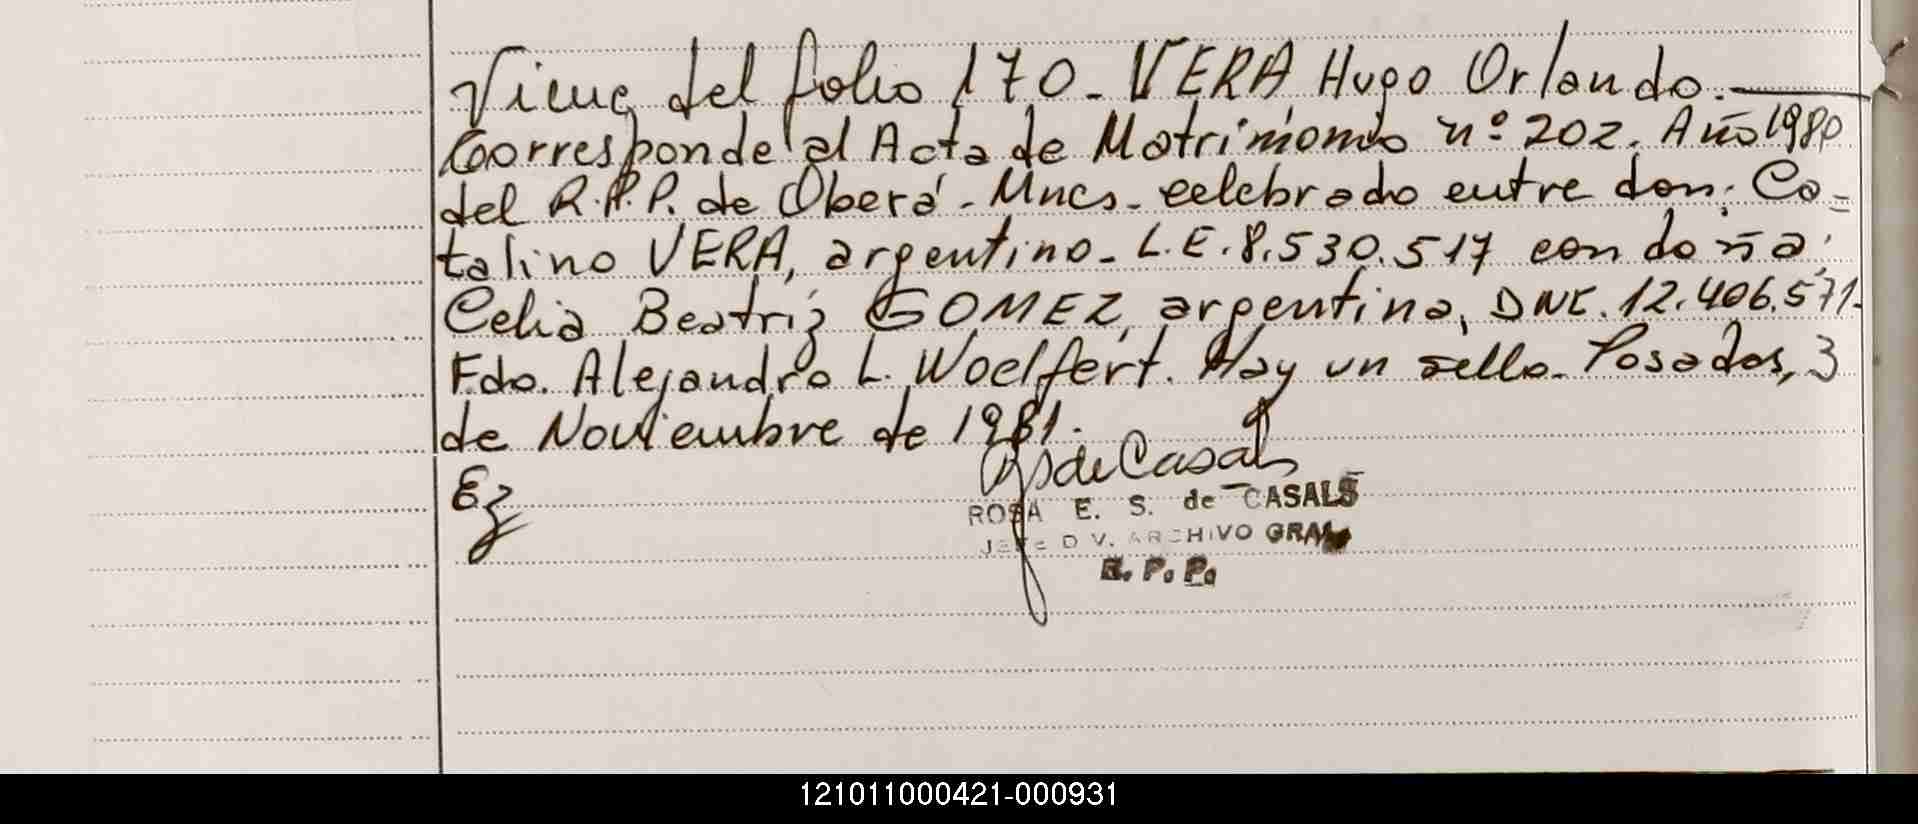 Viene del folio 170_ VERA, Hugo Orlando.
Corresponde al Acta de Matrimonio nº 202. Año 1980
del R.P.P. de Oberá - Mnes. celebrado entre don: Ca-
talino VERA, argentino_ L.E. 8.530.517 con doña:
Celia Beatriz GOMEZ, argentina, DNI. 12.406.571.
Fdo. Alejandro L. Woelfert. Hay un sello_ Posadas, 3
de Noviembre de 1981.
Ez
ROSA E. S. de CASALS
JEFE DIV. ARCHIVO GRAL
R. P. P.
121011000421-000931